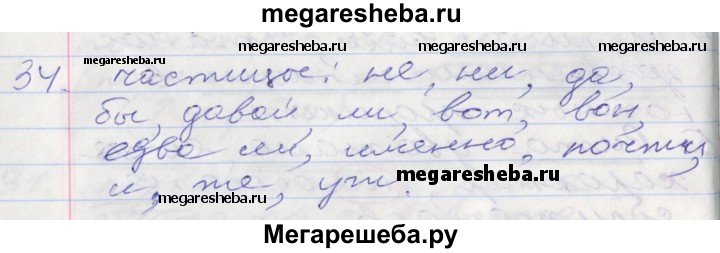 megaresheba.ru
megaresheba.ru megaresheba.ru
34. частицы: не, ни, да,
megaresheba.ru
бы, давай ли, вот, вон,
megaresheba.ru megaresheba.ru
едва ли, именно, почти,
и, же, уж.
megaresheba.ru
megaresheba.ru
Мегарешеба.ру